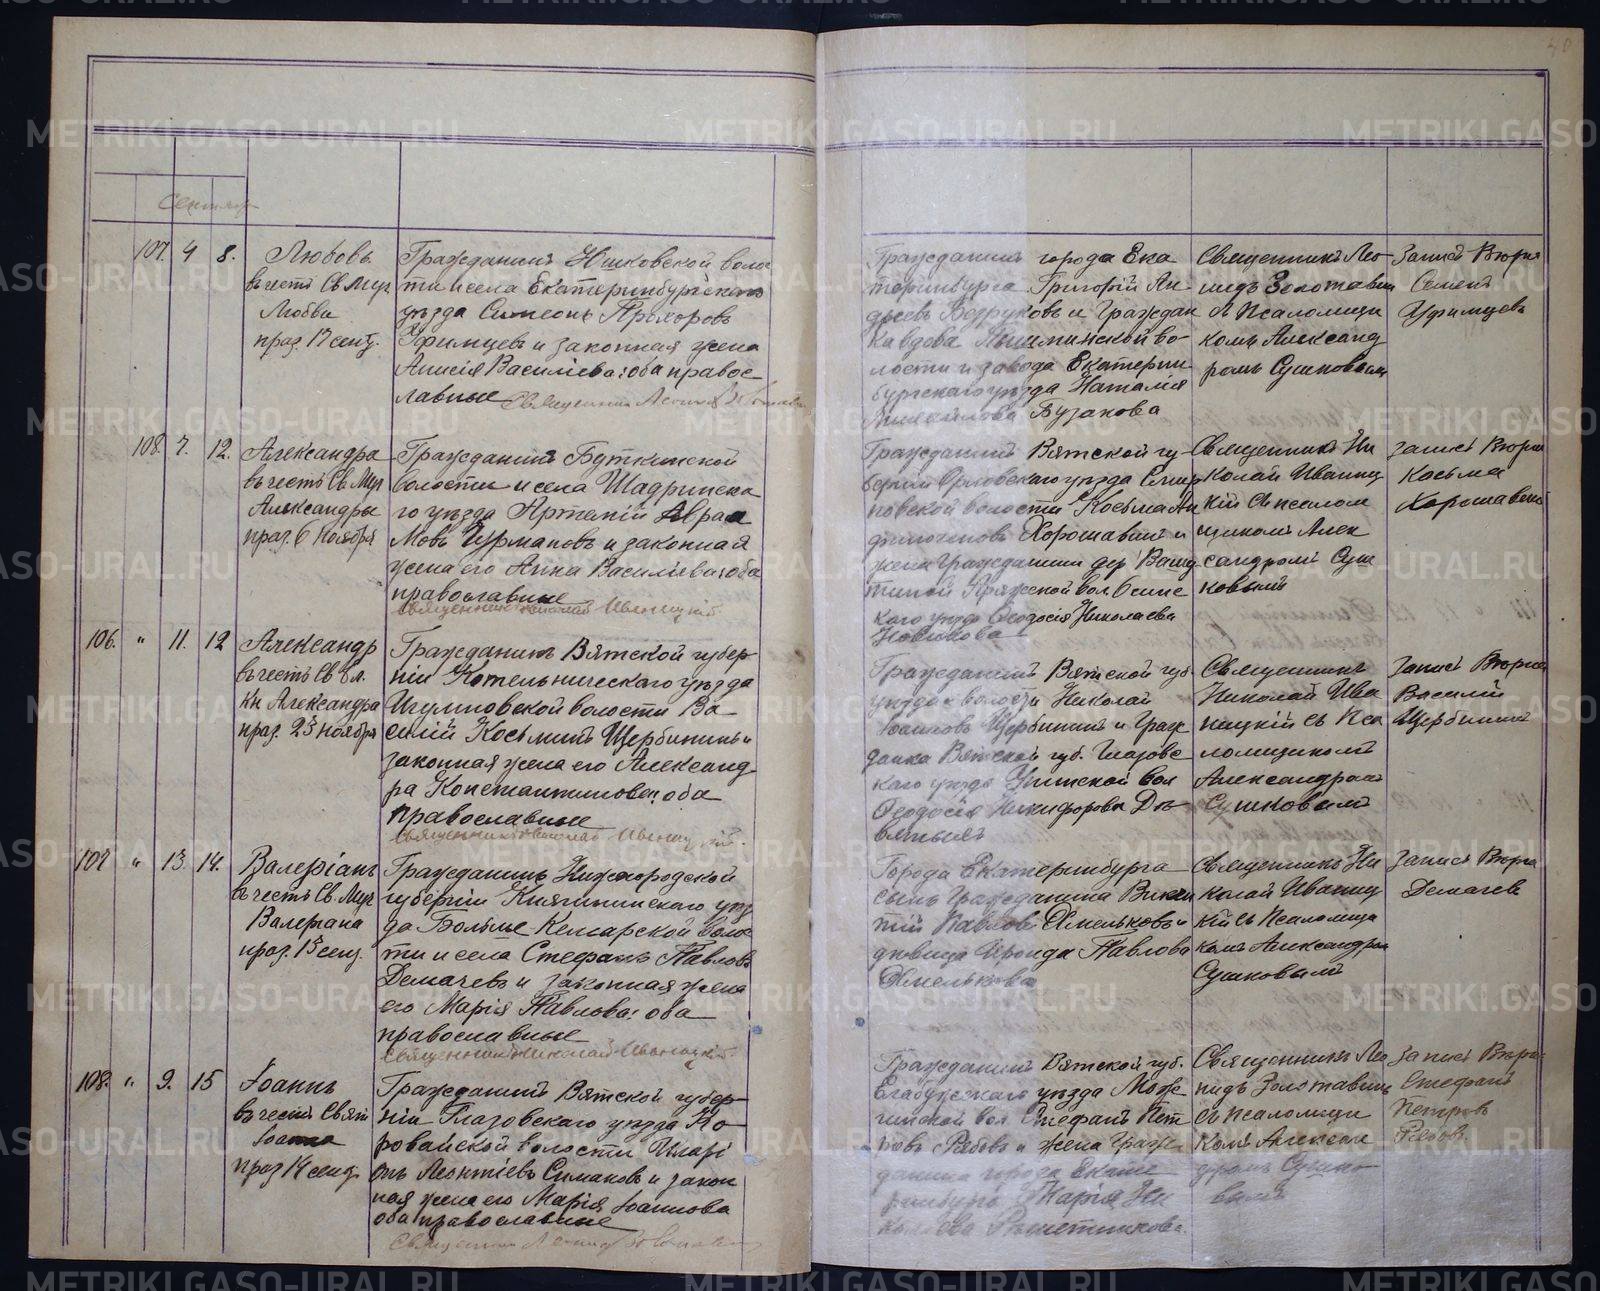 40
Сентябрь
107. 4 8. Любовь
въ честь Св. Муч.
Любви
праз. 17 сент.
Гражданинъ волос
ти и села Екатеринбургскаго
уѣзда Симеонъ Прохоровъ
Уфимцевъ и законная жена
Анисія Василіева: оба правос
лавные Священникъ Леонидъ
Гражданинъ города Ека
теринбурга Григорій Ан
дреевъ и Граждан
ка вдова Пышминской во
лости и завода Екатерин
бургскаго уѣзда Наталія
Михайлова Бузакова
Священникъ Лео
нидъ Золотавин
съ Псаломщи
комъ Александ
ромъ Сушковымъ
Записъ Вѣрна
Семенъ
Уфимцевъ
108. 7. 12. Александра
въ честь Св. Муч
Александры
праз. 6 Ноября
Гражданинъ Буткинской
волости и села Шадринска
го уѣзда Артемій Авраа
мовъ Чурмановъ и законная
жена его Анна Василіева: оба
православные
Священникъ Николай Иваницкій
Гражданинъ Вятской гу
берніи Орловскаго уѣзда Смир
новской волости Косьма Ан
филофіевъ Хорошавинъ и
жена Гражданина дер.
вол. Осинс
каго уѣзда Ѳеодосія Николаева
Новикова
Священникъ Ни
колай Иваниц
кій съ псалом
щикомъ Алек
сандромъ Суш
ковымъ
Записъ Вѣрна
Косьма
Хорошавинъ
106. " 11. 12 Александр
въ честь Св. Бл.
Кн. Александра
праз. 23 ноября
Гражданинъ Вятской губер
ніи Котельническаго уѣзда
Игумновской волости Ва
силій Косьминъ Щербининъ и
законная жена его Александ
ра Константинова: оба
православные
Священникъ Николай Иваницкій.
Гражданинъ Вятской губ.
уѣзда и волости Николай
Іоанновъ Щербининъ и Граж
данка Вятской губ. Глазовс
каго уѣзда Унтской вол
Ѳеодосія Никифорова Де
вятьихъ
Священникъ
Николай Ива
ницкій съ Пса
ломщикомъ
Александромъ
Сушковымъ
Записъ Вѣрна
Василій
Щербининъ
107 " 13. 14. Валеріанъ
въ честь Св. Муч
Валеріана
праз. 13 сент.
Гражданинъ Нижегородской
губерніи Княгининскаго уѣз
да Больше Кемарской волос
ти и села Стефанъ Павловъ
Демачевъ и законная жена
его Марія Павлова: оба
православные
Священникъ Николай Иваницкій
Города Екатеринбурга
сынъ Гражданина Викен
тій Павловъ Хмельковъ и
дѣвица Ироида Павлова
Хмелькова
Священникъ Ни
колай Иваниц
кій съ Псаломщи
комъ Александромъ
Сушковымъ
Записъ Вѣрна
Демачевъ
108. " 9. 15 Іоаннъ
въ честь Свят
Іоанна
праз 14 сент.
Гражданинъ Вятской губер
ніи Глазовскаго уѣзда Ко
ровайской волости Иларі
онъ Леонтіевъ Симаковъ и закон
ная жена его Марія Іоаннова
оба православные
Священникъ Леонидъ Золотавинъ
Гражданинъ Вятской губ.
Елабужскаго уѣзда Мож
гинской вол. Стефанъ Пет
ровъ Рябовъ и жена Граж
данина города Екате
ринбурга Марія Ни
колаева Рѣшетникова.
Священникъ Лео
нидъ Золотавинъ
съ псаломщи
комъ Алексан
дромъ Сушко
вымъ
Записъ Вѣрна
Стефанъ
Петровъ
Рябовъ.
METRIKI.GASO-URAL.RU